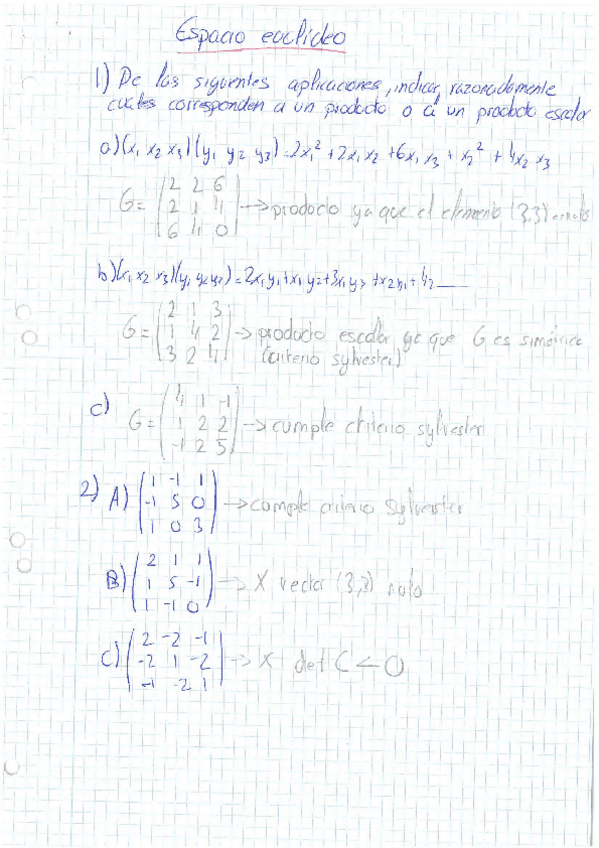 Espacio euclídeo
1) De las siguientes aplicaciones, indicar, razonadamente
cuáles corresponden a un producto o a un producto escalar
a) (x₁ x₂ x₃)(y₁ y₂ y₃) = 2x₁² + 2x₁x₂ + 6x₁x₃ + x₂² + 4x₂x₃
2 2 6
G = 2 1 4 → producto ya que el elemento (3,3) es nulo
6 4 0
b) (x₁ x₂ x₃)(y₁ y₂ y₃) = 2x₁y₁ + x₁y₂ + 3x₁y₃ + x₂y₁ + 4
2 1 3
G = 1 4 2 → producto escalar ya que G es simétrica
3 2 4 (criterio sylvester)
c) 4 1 -1
G = 1 2 2 → cumple criterio sylvester
-1 2 5
2) A) 1 -1 1
-1 5 0 → cumple criterio Sylvester
1 0 3
B) 2 1 1
1 5 -1 → X vector (3,3) nulo
1 -1 0
C) 2 -2 -1
-2 1 -2 → X det C < 0
-1 -2 1